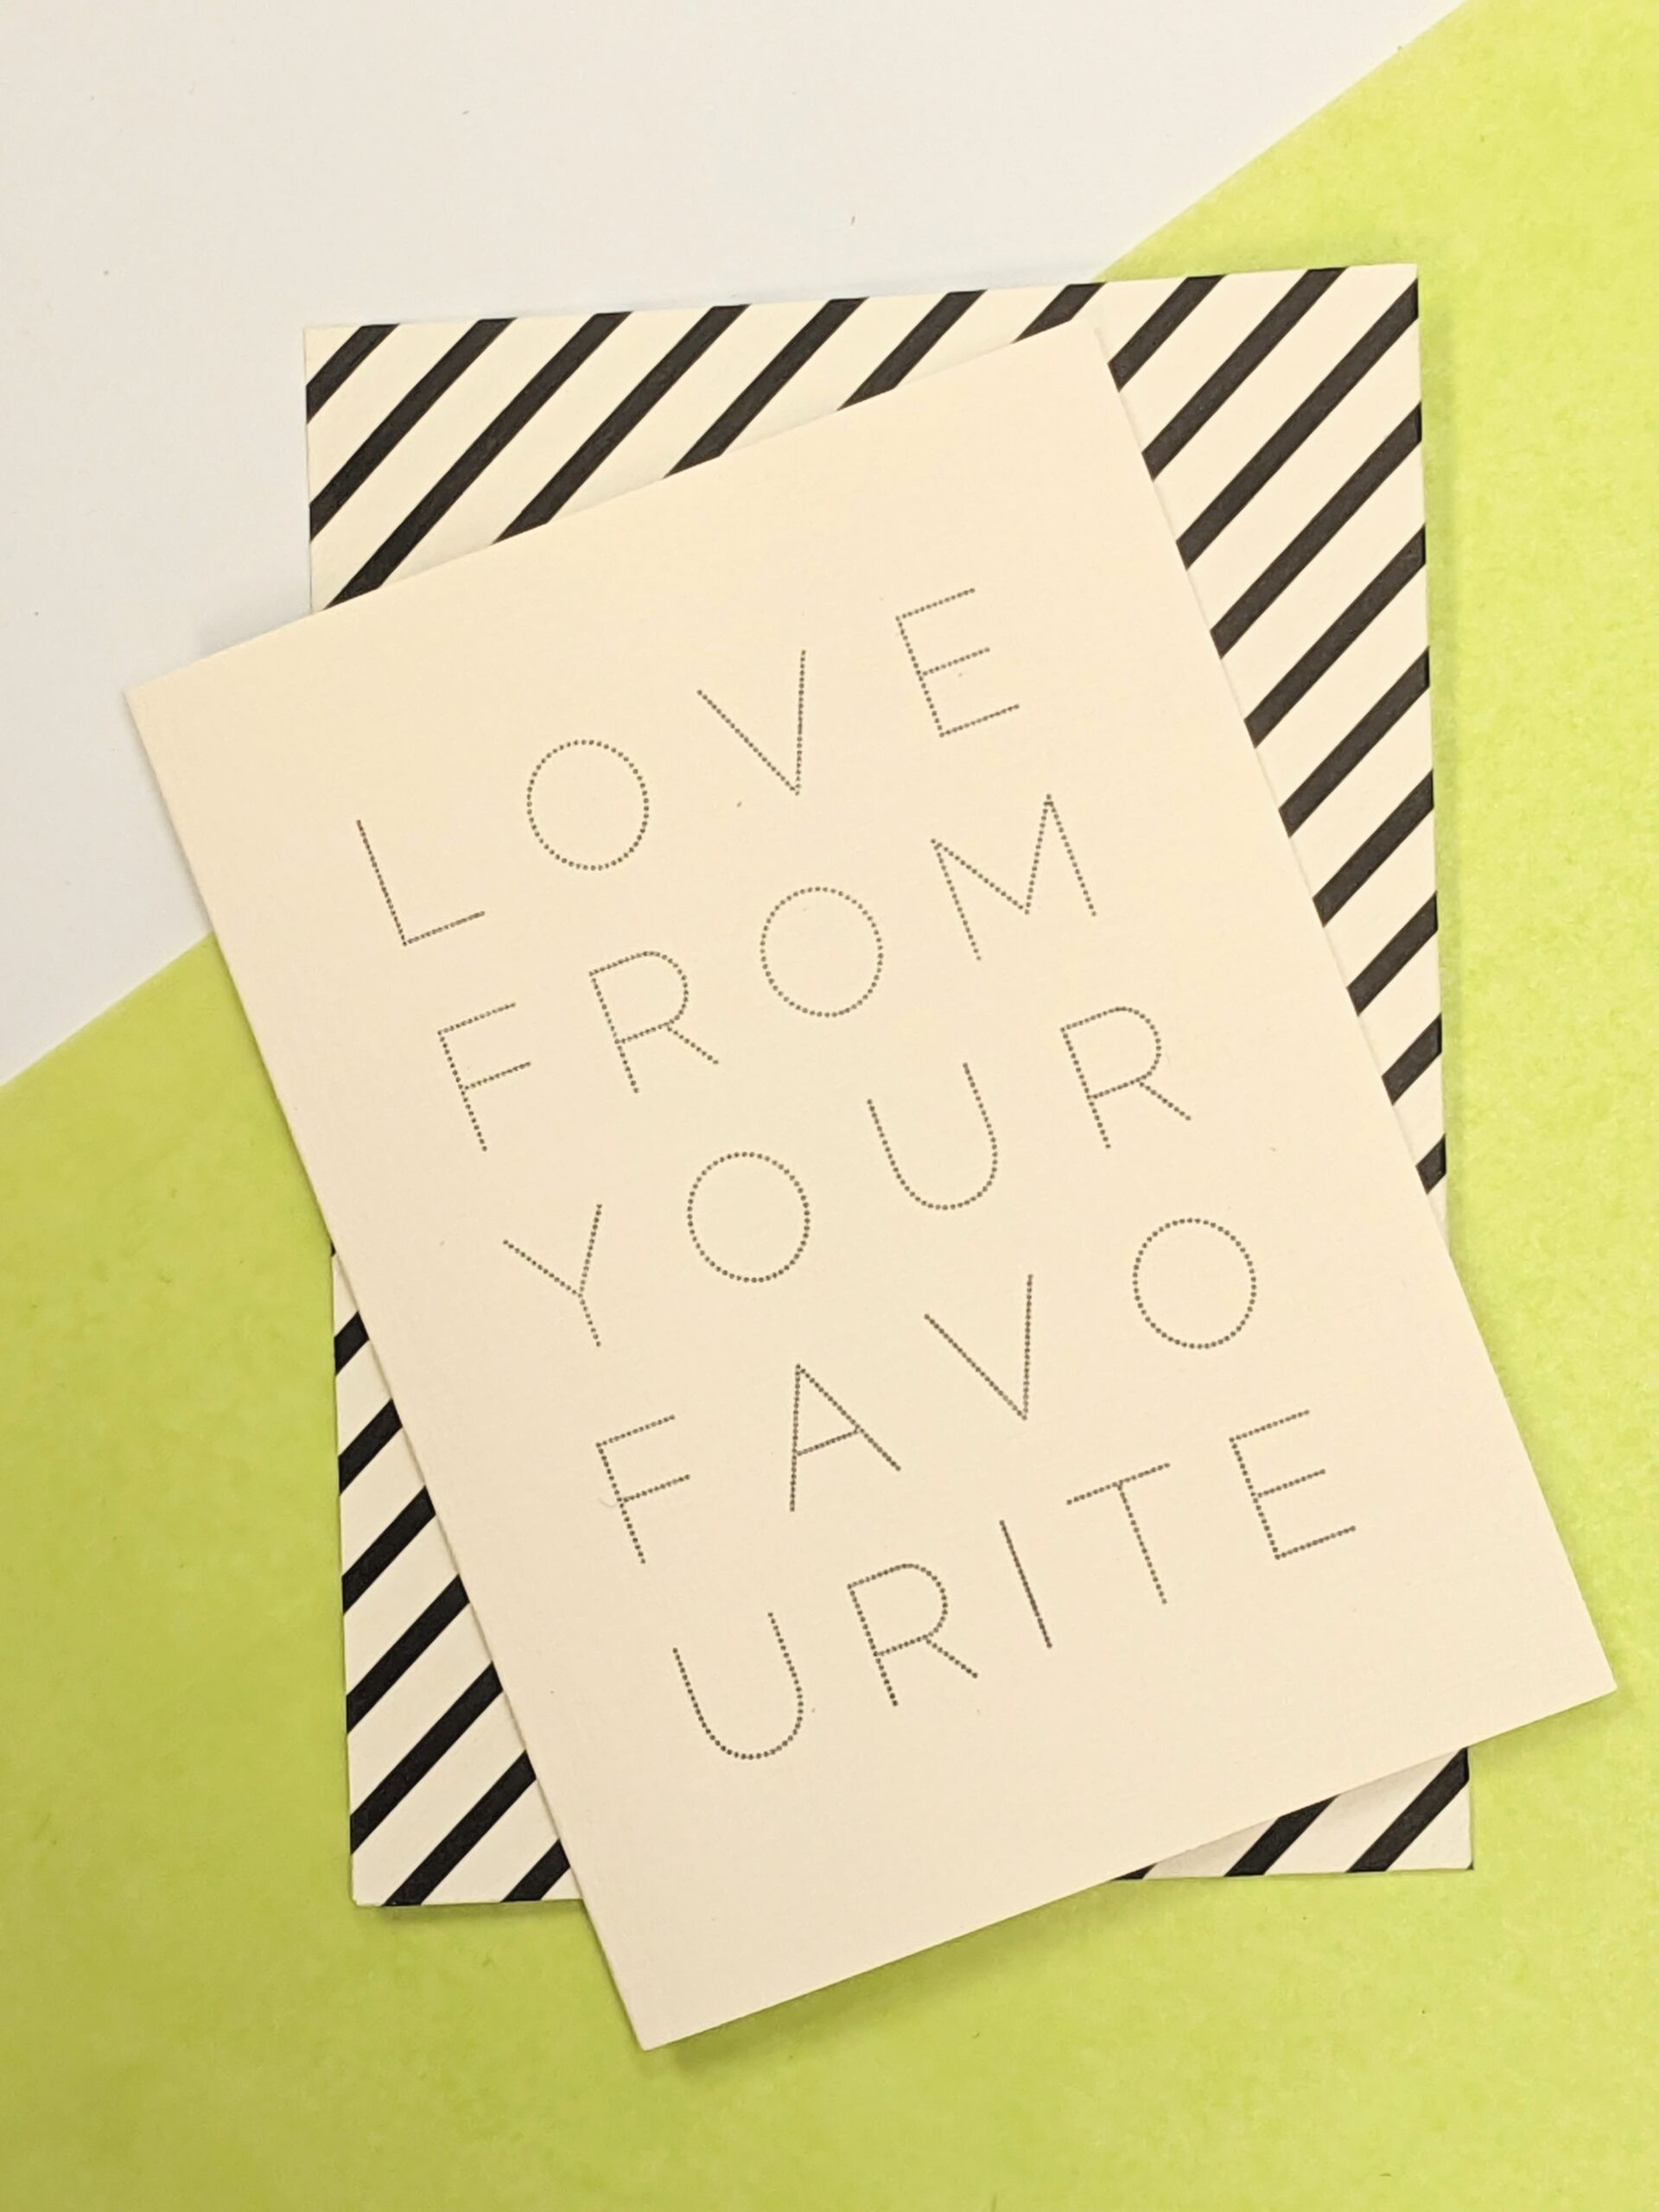 LOVE
FROM
YOUR
FAVO
URITE